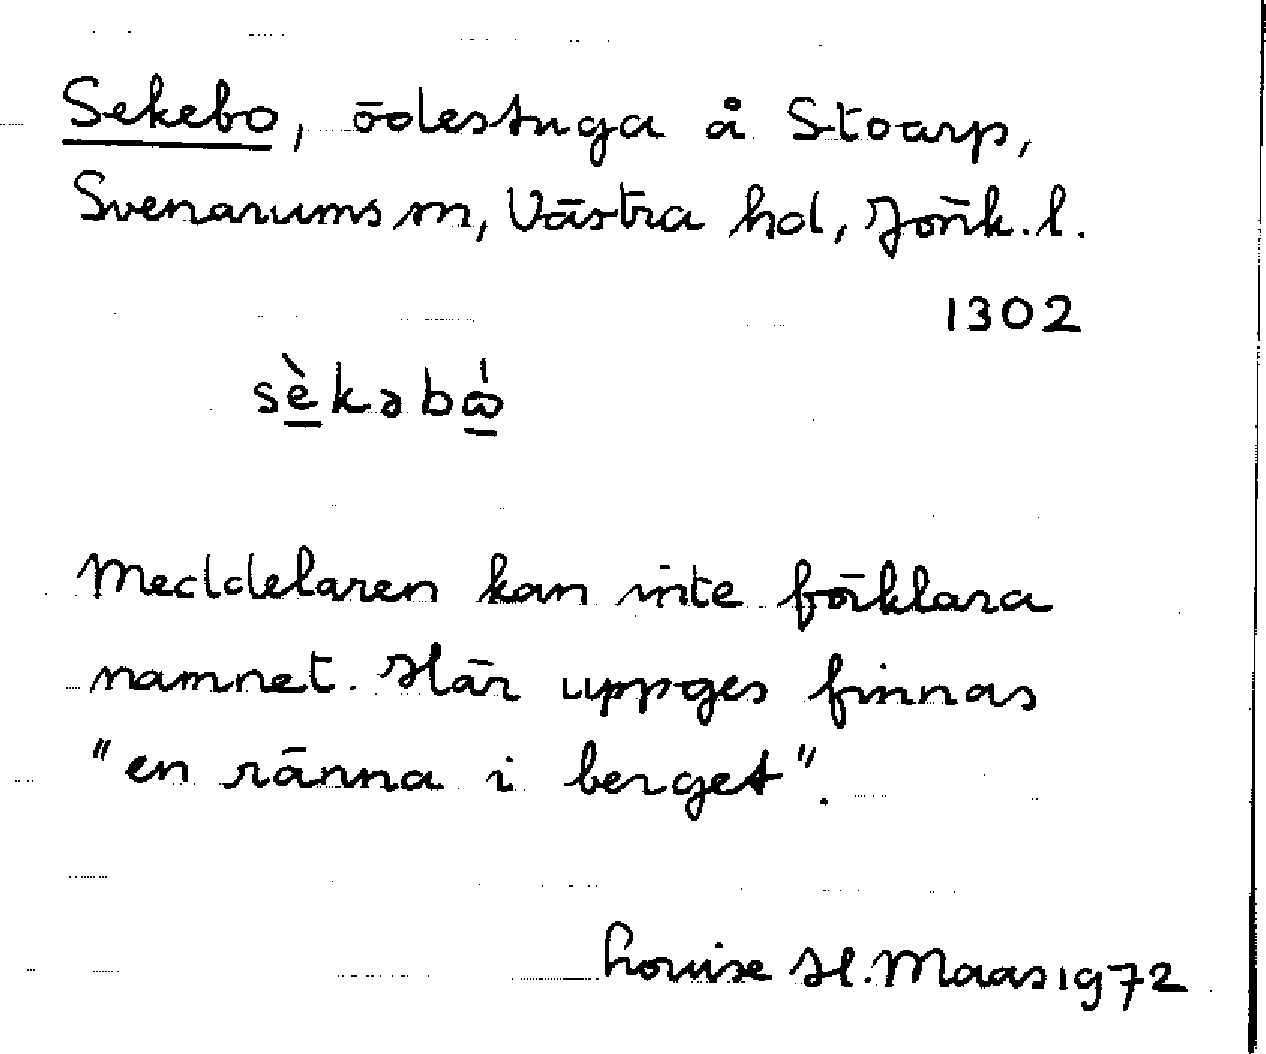 Sekebo, ödestuga å Stoarp,
Svenarums sn, Västra hd, Jönk. l.
1302
sèkəbὼ
Meddelaren kan inte förklara
namnet. Här uppges finnas
"en ränna i berget".
Louise H. Maas 1972